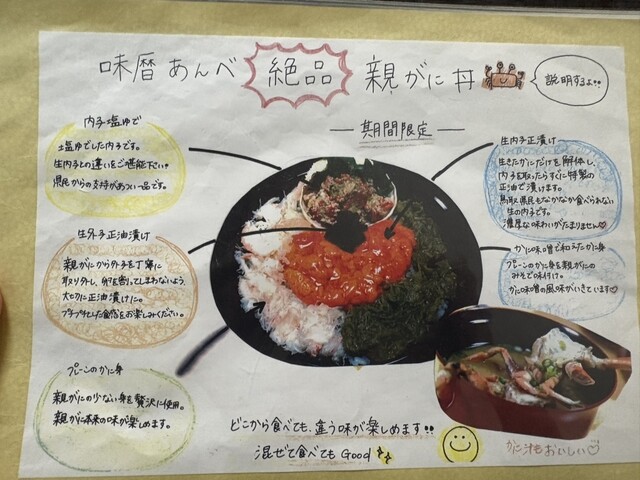 味暦あんべ 絶品 親がに丼
説明するよ!!
期間限定
内子塩ゆで
塩ゆでした内子です。
生内子との違いをご堪能下さい。
県民からの支持があつい一品です。
生内子正油漬け
生きたかにだけを解体し、
内子を取ったらすぐに特製の
正油で漬けます。
鳥取県民もなかなか食べられない
生の内子です。
濃厚な味わいがたまりません♡
生外子正油漬け
親がにから外子を丁寧に
取り外し、卵を割ってしまわないよう、
大切に正油漬けに。
プチプチとした食感をお楽しみください。
かに味噌で和えたかに身
プレーンのかに身を親がにの
みそで味付け。
かに味噌の風味がいきています♡
プレーンのかに身
親がにの少ない身を贅沢に使用。
親がに本来の味が楽しめます。
どこから食べても、違う味が楽しめます!!
混ぜて食べてもGood
かに汁もおいしい♡